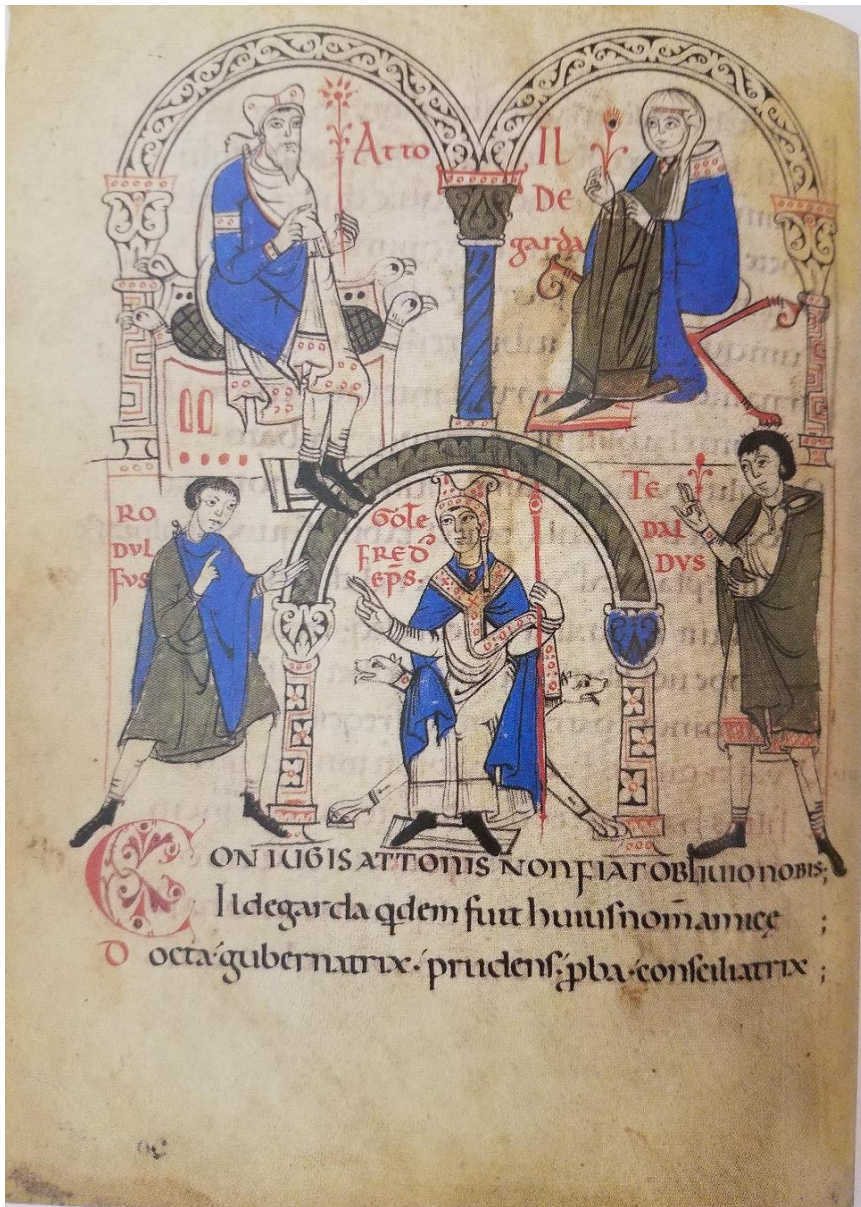 Atto
IL
DE
garda
RO
DUL
FUS
GOTE
FRED
EPS.
TE
DAL
DVS
CONIUGIS ATTONIS NON FIAT OBLIUIO NOBIS;
Ildegarda qdem fuit huius nom̄ amicę ;
Docta·gubernatrix·prudens·pba·consciliatrix ;